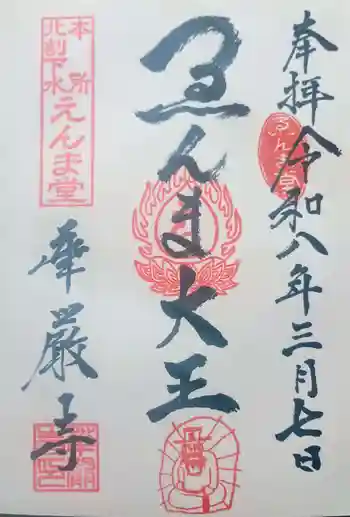 奉拝 令和八年三月七日
ゑんま大王
本所
北割下水
えんま堂
華厳寺